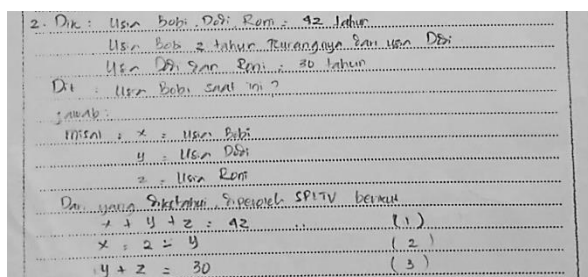 2. Dik : Usia Bobi, Dedi, Roni = 42 tahun
Usia Bobi 2 tahun kurangnya dari usia Dedi
Usia Dedi dan Roni = 30 tahun
Dit : Usia Bobi saat ini ?
Jawab :
misal : x = Usia Bobi
y = Usia Dedi
z = Usia Roni
Dari yang diketahui, diperoleh SPLTV berikut
x + y + z = 42 .. (1)
x = 2 - y (2)
y + z = 30 (3)